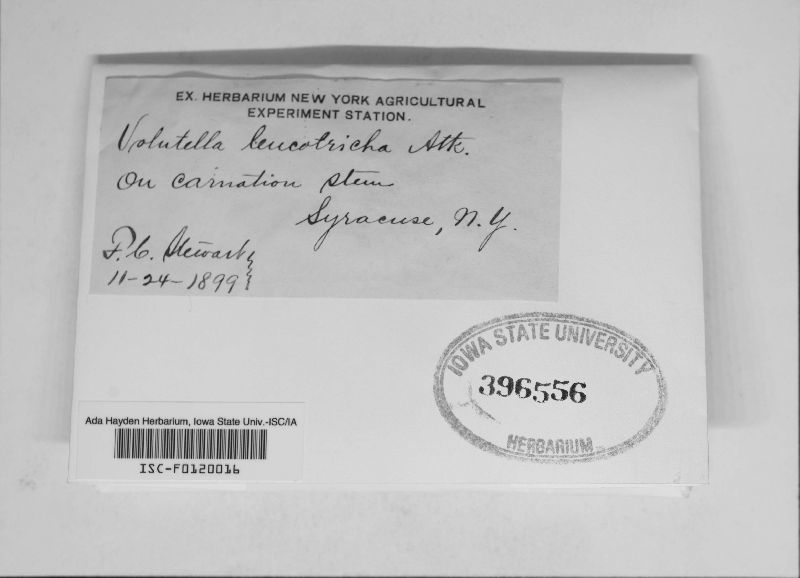 EX. HERBARIUM NEW YORK AGRICULTURAL
EXPERIMENT STATION.
Volutella leucotricha Atk.
On carnation stem
Syracuse, N.Y.
F.C. Stewart
11-24-1899
IOWA STATE UNIVERSITY
396556
HERBARIUM
Ada Hayden Herbarium, Iowa State Univ.-ISC/IA
ISC-F0120016